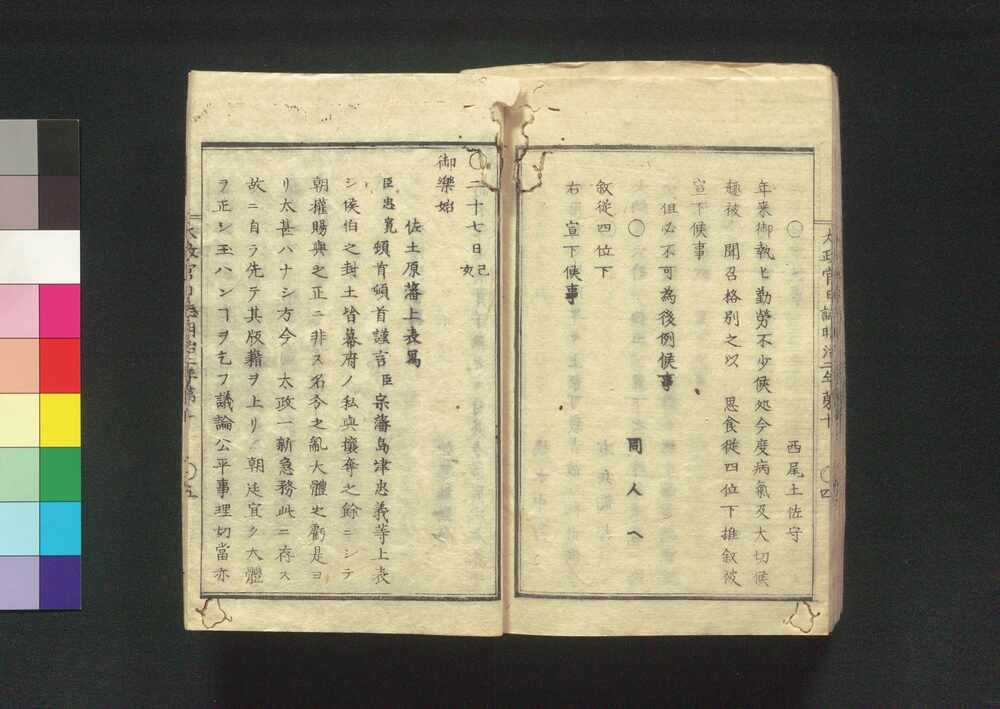 太政官日誌明治二年第十
〇四
〇 西尾土佐守
年来御執ヒ勤労不少候処今度病氣及大切候
趣被 聞召格別之以 思食従四位下推叙被
宣下候事
但必不可為後例候事
〇 同人ヘ
叙従四位下
右 宣下候事
〇二十七日己亥
御樂始
佐土原藩上表写
臣忠寛頓首頓首謹言臣宗藩島津忠義等上表
シ侯伯之封土皆幕府ノ私與攘奪之餘ニシテ
朝權賜與之正ニ非ス名分之亂大體之虧是ヨ
リ太甚ハナシ方今 太政一新急務此ニ存ス
故ニ自ラ先テ其版籍ヲ上リ 朝廷宜ク大體
ヲ正シ玉ハンヿヲ乞フ議論公平事理切當亦
〇五